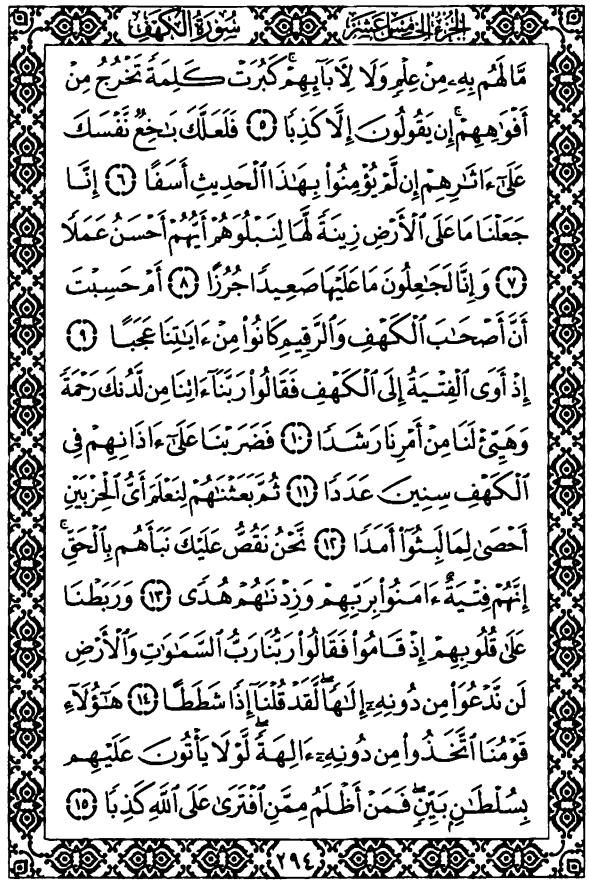 سُورَةُ الكَهْفِ الجُزْءُ الخَامِسَ عَشَرَ
مَّا لَهُم بِهِۦ مِنْ عِلْمٍ وَلَا لِأٓبَآئِهِمْ ۚ كَبُرَتْ كَلِمَةً تَخْرُجُ مِنْ
أَفْوَٰهِهِمْ ۚ إِن يَقُولُونَ إِلَّا كَذِبًا ٥ فَلَعَلَّكَ بَٰخِعٌ نَّفْسَكَ
عَلَىٰٓ ءَاثَٰرِهِمْ إِن لَّمْ يُؤْمِنُوا۟ بِهَٰذَا ٱلْحَدِيثِ أَسَفًا ٦ إِنَّا
جَعَلْنَا مَا عَلَى ٱلْأَرْضِ زِينَةً لَّهَا لِنَبْلُوَهُمْ أَيُّهُمْ أَحْسَنُ عَمَلًا
٧ وَإِنَّا لَجَٰعِلُونَ مَا عَلَيْهَا صَعِيدًا جُرُزًا ٨ أَمْ حَسِبْتَ
أَنَّ أَصْحَٰبَ ٱلْكَهْفِ وَٱلرَّقِيمِ كَانُوا۟ مِنْ ءَايَٰتِنَا عَجَبًا ٩
إِذْ أَوَى ٱلْفِتْيَةُ إِلَى ٱلْكَهْفِ فَقَالُوا۟ رَبَّنَآ ءَاتِنَا مِن لَّدُنكَ رَحْمَةً
وَهَيِّئْ لَنَا مِنْ أَمْرِنَا رَشَدًا ١٠ فَضَرَبْنَا عَلَىٰٓ ءَاذَانِهِمْ فِى
ٱلْكَهْفِ سِنِينَ عَدَدًا ١١ ثُمَّ بَعَثْنَٰهُمْ لِنَعْلَمَ أَىُّ ٱلْحِزْبَيْنِ
أَحْصَىٰ لِمَا لَبِثُوٓا۟ أَمَدًا ١٢ نَّحْنُ نَقُصُّ عَلَيْكَ نَبَأَهُم بِٱلْحَقِّ ۚ
إِنَّهُمْ فِتْيَةٌ ءَامَنُوا۟ بِرَبِّهِمْ وَزِدْنَٰهُمْ هُدًى ١٣ وَرَبَطْنَا
عَلَىٰ قُلُوبِهِمْ إِذْ قَامُوا۟ فَقَالُوا۟ رَبُّنَا رَبُّ ٱلسَّمَٰوَٰتِ وَٱلْأَرْضِ
لَن نَّدْعُوَا۟ مِن دُونِهِۦٓ إِلَٰهًا ۖ لَّقَدْ قُلْنَآ إِذًا شَطَطًا ١٤ هَٰٓؤُلَآءِ
قَوْمُنَا ٱتَّخَذُوا۟ مِن دُونِهِۦٓ ءَالِهَةً ۖ لَّوْلَا يَأْتُونَ عَلَيْهِم
بِسُلْطَٰنٍۭ بَيِّنٍ ۖ فَمَنْ أَظْلَمُ مِمَّنِ ٱفْتَرَىٰ عَلَى ٱللَّهِ كَذِبًا ١٥
٢٩٤